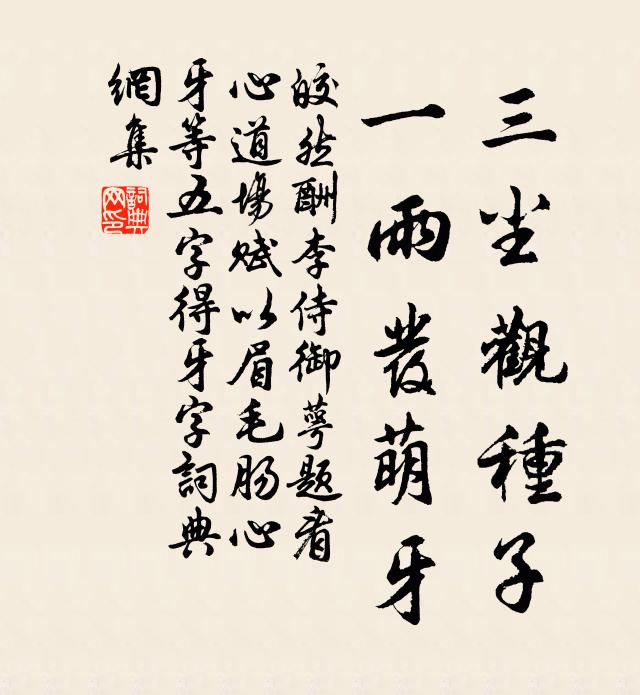 三尘觀種子
一雨發萌牙
皎然酬李侍御萼題看
心道場賦以眉毛腸心
牙等五字得牙字詞典
網集
詞典网印